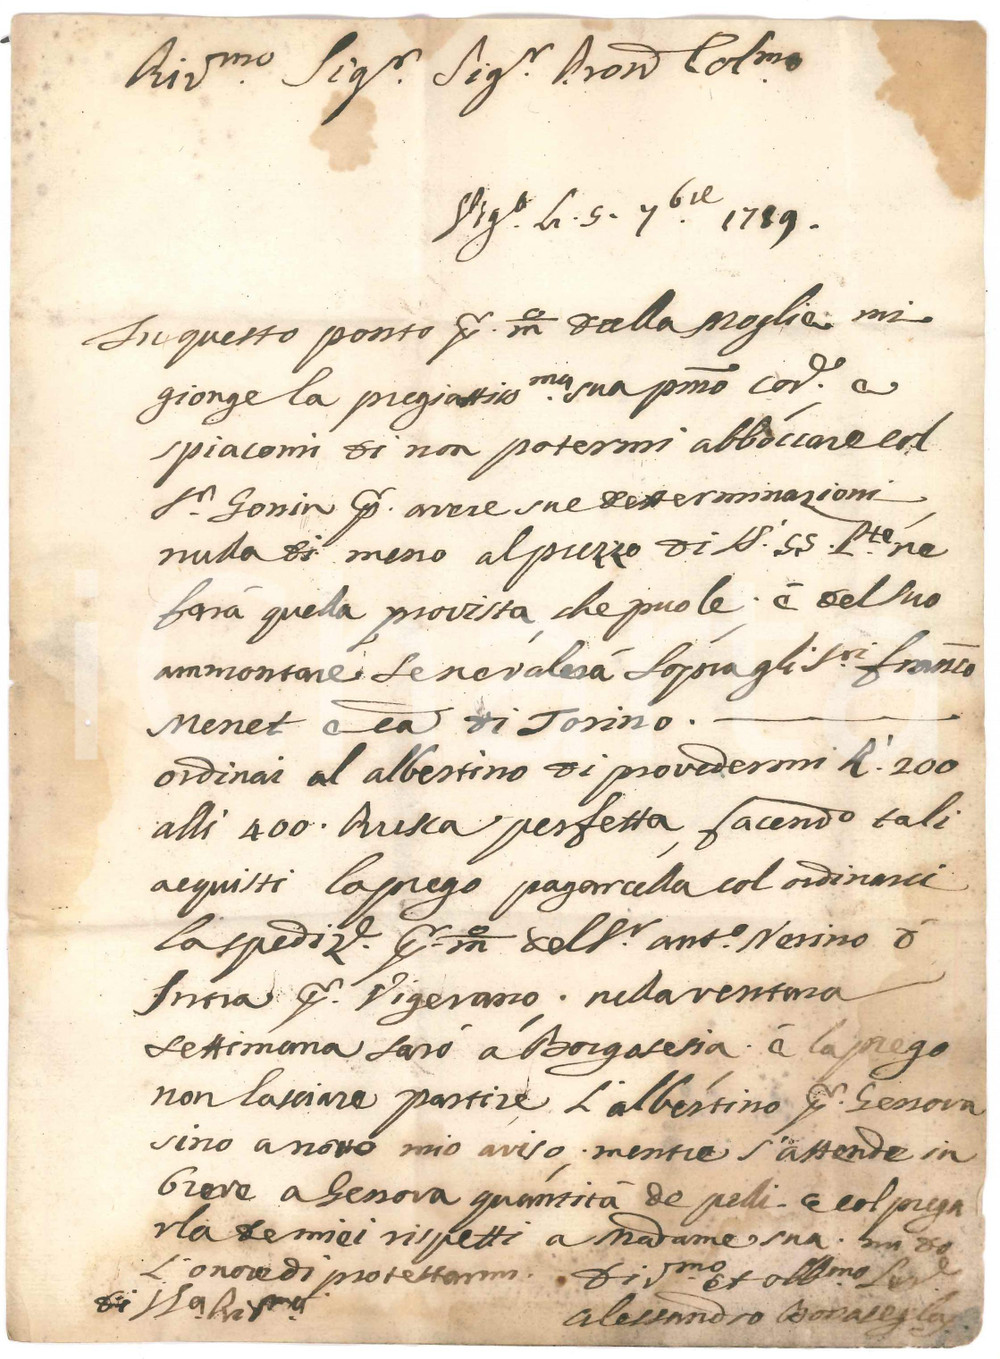 Riv.mo Sig.r Sig.r Pron Col.mo
Vig.o li. 5. 7.bre 1789.
In questo ponto p. m della Moglie mi
gionge la pregiatiss.ma sua pmo cor.e e
spiacemi di non potermi abboccare col
S.r Gonin p. avere sue determinazioni
nulla di meno al prezzo di V. SS. P.te ne
farà quella provista, che puole. è del suo
ammontare se ne valerà sopra gli S.ri Franco
Menet e Ca di Torino.
ordinai al albertino di provedermi R. 200
alli 400. Rusca perfetta, facendo tali
acquisti la prego pagarcella col ordinarci
la spediz.e p. m dell S.r ant.o Nerino d
Intra p. Vigevano. nella ventura
settimana sarò a Borgosesia. è la prego
non lasciare partire L'albertino p. Genova
sino a novo mio aviso, mentre s'attende in
breve a Genova quantità de pelli. e col prega
rla de miei rispetti a Madame sua. mi do
L'onore di protestarmi.
di V.S.a Riv.ma Div.mo et obb.mo Ser.e
alessandro